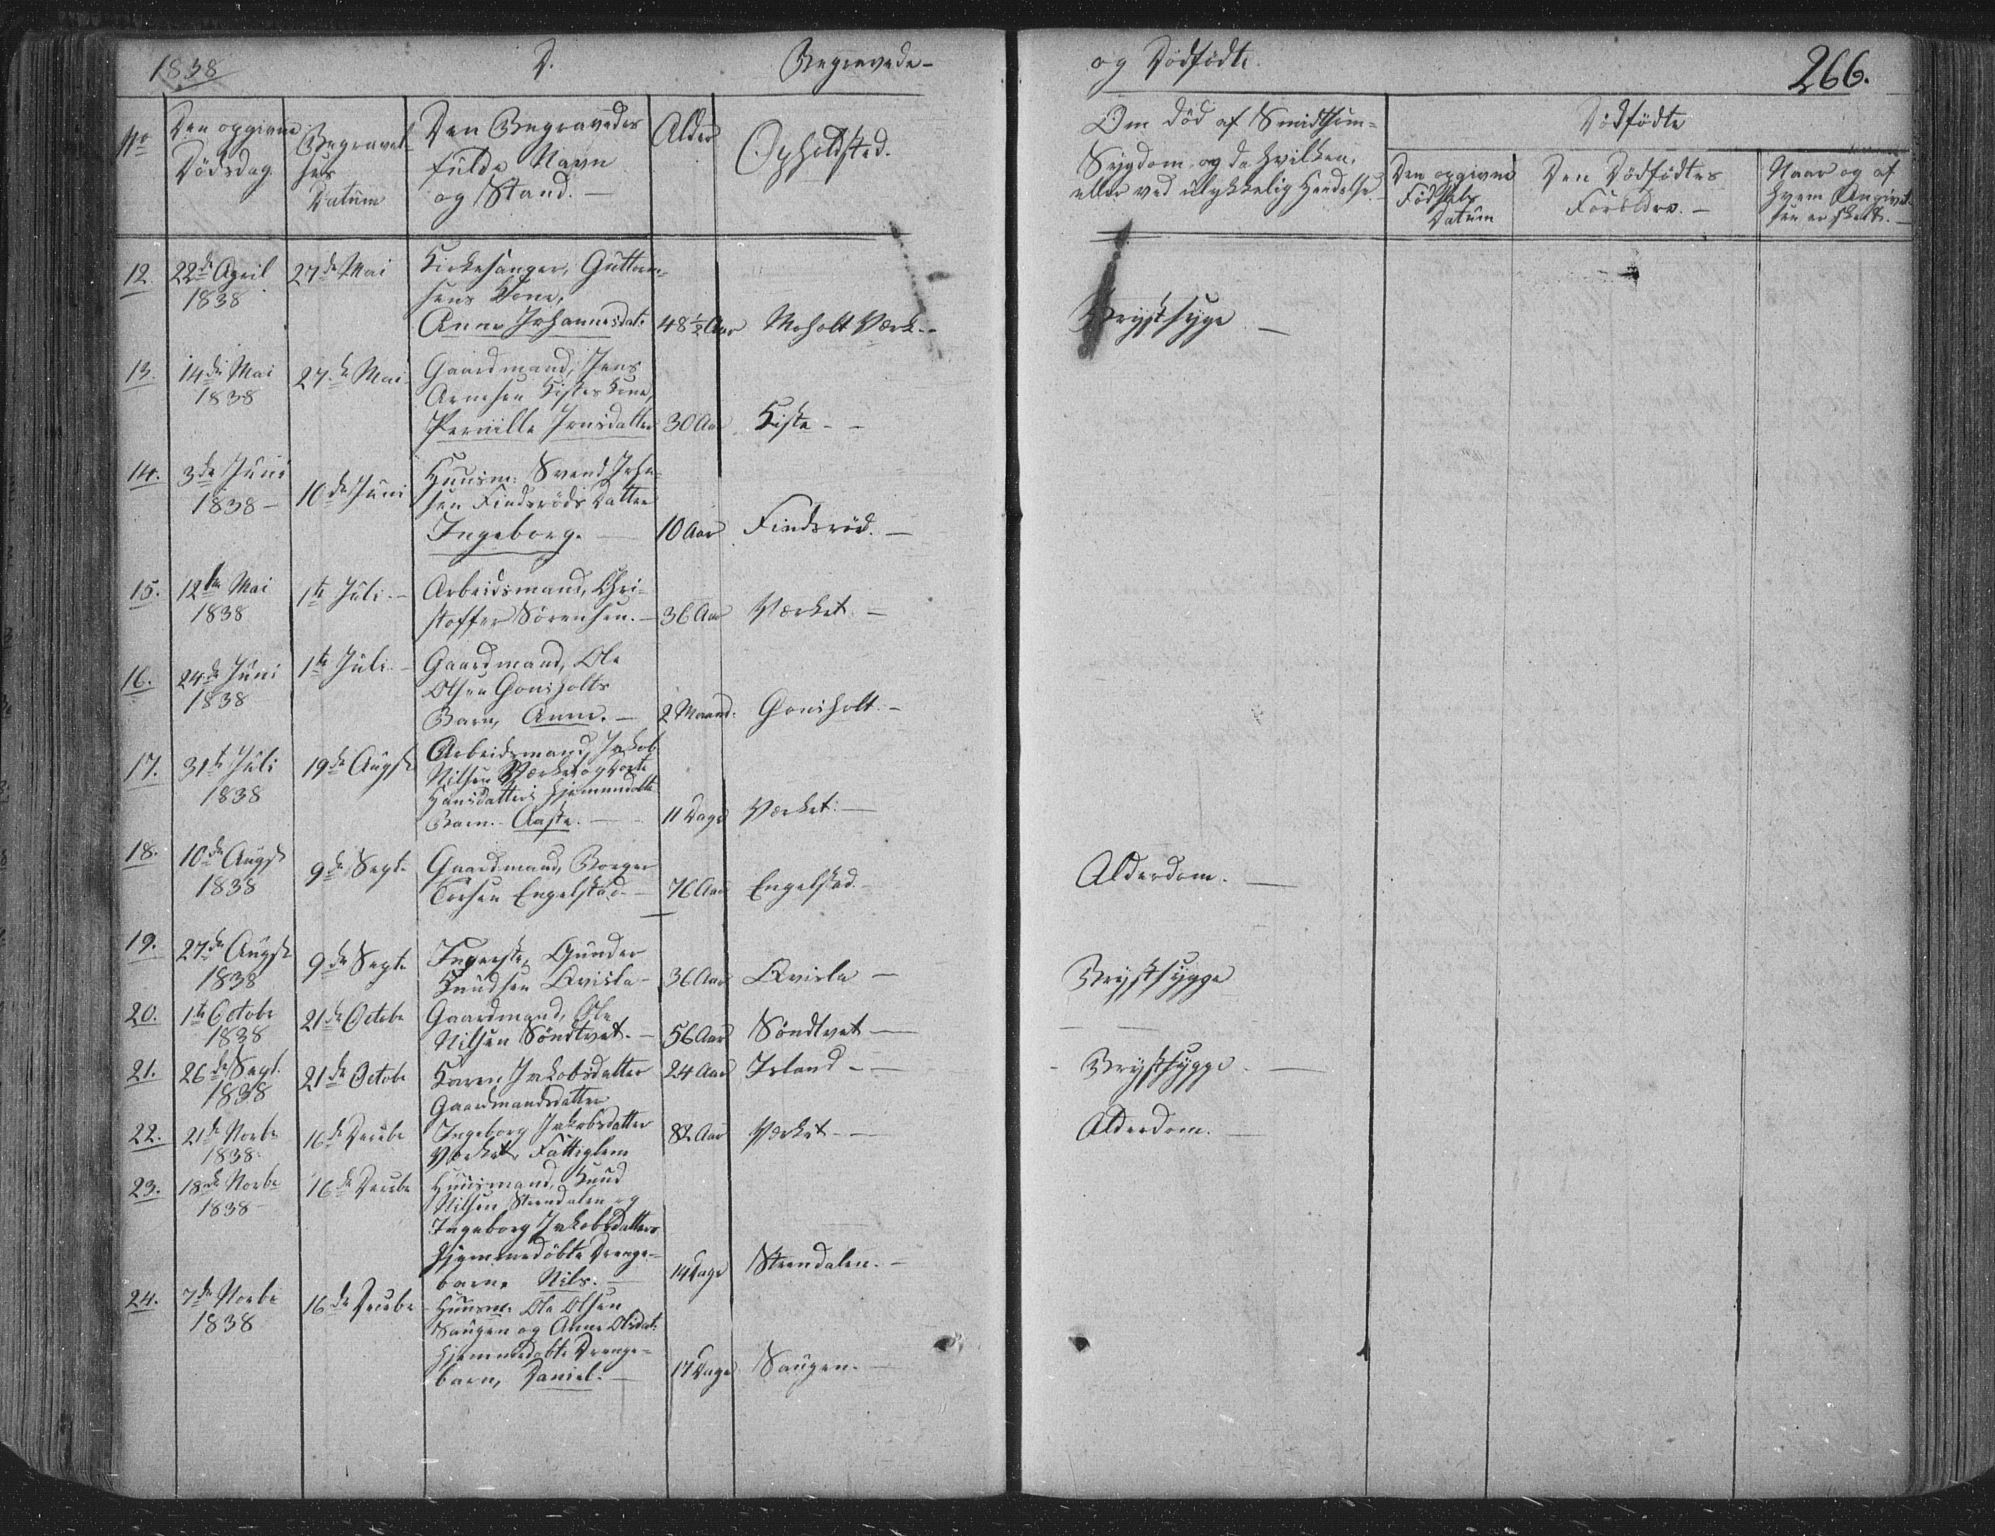 1838
D.
Begravede
og Dødfødte.
266.
No
Den opgivne
Dødsdag.
Begravel-
ses
Datum
Den Begravedes
fulde Navn
og Stand.
Alder
Opholdsted.
Om død af Smidtsom-
Sygdom, og da hvilken,
eller ved ulykkelig Hendelse.
Dødfødte
Den opgivne
Fødsels
Datum
Den Dødfødtes
Forældre.
Naar og af
hvem
er skedt.
12. 22de April 1838
27de Mai
Kirkesanger, Guttorm-
sens Kone,
Anne Johannesdat:
48 1/2 Aar
Moholt Værk
Brystsyge
13. 14de Mai 1838
27de Mai
Gaardmand, Jens
Arnesen Kistes Kone,
Pernille Jensdatter
30 Aar
Kiste
14. 3de Juni 1838
10de Juni
Huusm: Svend Joha-
sen Findsrøds Datter
Ingeborg.
10 Aar
Findsrød.
15. 12te Mai 1838
1te Juli
Arbeidsmand, Chri-
stoffer Sørensen.
36 Aar
Værket
16. 24de Juni 1838
1te Juli
Gaardmand, Ole
Olsen Gonsholts
Barn, Anne.
2 Maand:
Gonsholt
17. 31te Juli 1838
19de Augst
Arbeidsmand, Jakob
Nilsen Værket og
Hansdatters hjemmedøbte
Barn. Aaste.
11 Dage
Værket
18. 10de Augst 1838
9de Sept.
Gaardmand, Borger
Torsen Engelstad
76 Aar
Engelstad
Alderdom.
19. 27de Augst 1838
9de Sept.
Gunder
Knudsen Qvisla
36 Aar
Qvisla
Brystsygge
20. 1te Octobr 1838
21de Octobr
Gaardmand, Ole
Nilsen Søndtvet.
56 Aar
Søndtvet
21. 26de Sept. 1838
21de Octobr
Karen Jakobsdatter
Gaardmandsdatter
24 Aar
Island
Brystsygge
22. 21de Novbr 1838
16de Decebr
Ingeborg Jakobsdatter
Værket, Fattiglem
82 Aar
Værket
Alderdom.
23. 18de Novbr 1838
16de Decebr
Huusmand, Knud
Nilsen Steendalen og
Ingeborg Jakobsdatters
hjemmedøbte Drenge-
barn, Nils.
14 Dage
Steendalen.
24. 7de Novbr 1838
16de Decebr
Huusm: Ole Olsen
Saugen og Anne Olsdat:
hjemmedøbte Drenge-
barn, Daniel.
17 Dage
Saugen.